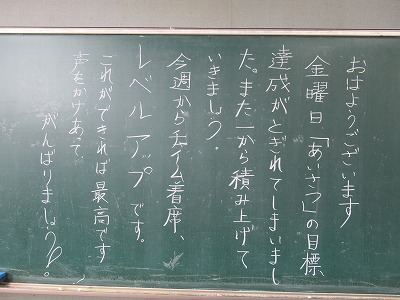 おはようございます
金曜日、「あいさつ」の目標
達成がとぎれてしまいまし
た。また一から積み上げて
いきましょう。
今週からチャイム着席、
レベルアップです。
これができれば最高です
声をかけあって
がんばりましょう。